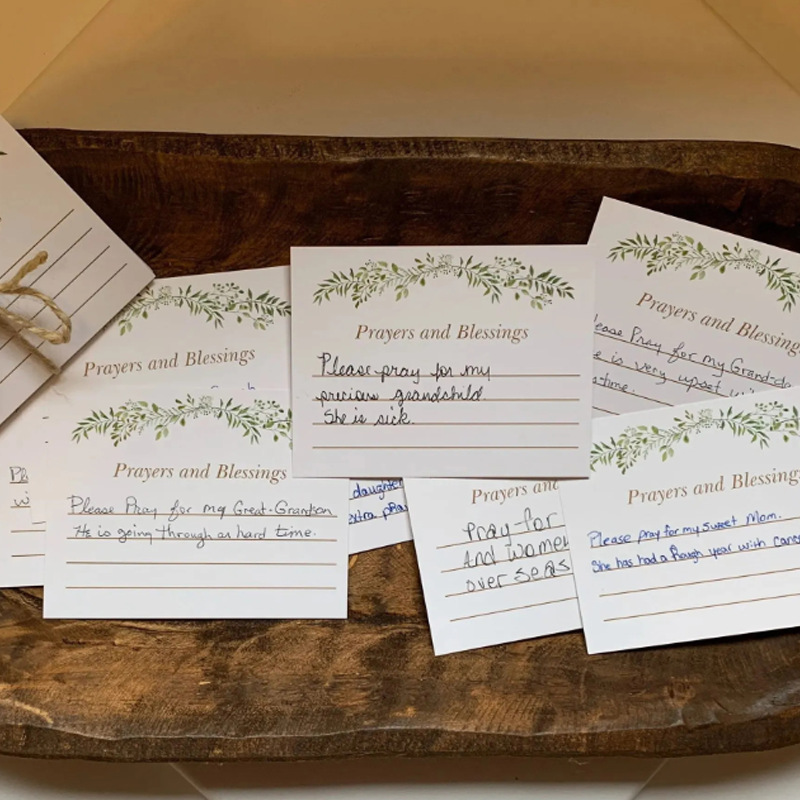 Prayers and Blessings
Please pray for my
precious grandchild.
She is sick.
Prayers and Blessings
Please Pray for my Grand-da
e is very upset
time.
Prayers and Blessings
Prayers and Blessings
Please Pray for my Great-Grandson
He is going through a hard time.
daughter
extra
Prayers an
Pray for
And women
over seas
Prayers and Blessings
Please pray for my sweet Mom.
She has had a rough year with canc